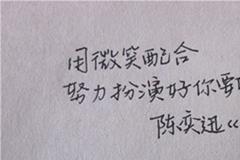 用微笑配合
努力扮演好你要
陈奕迅《